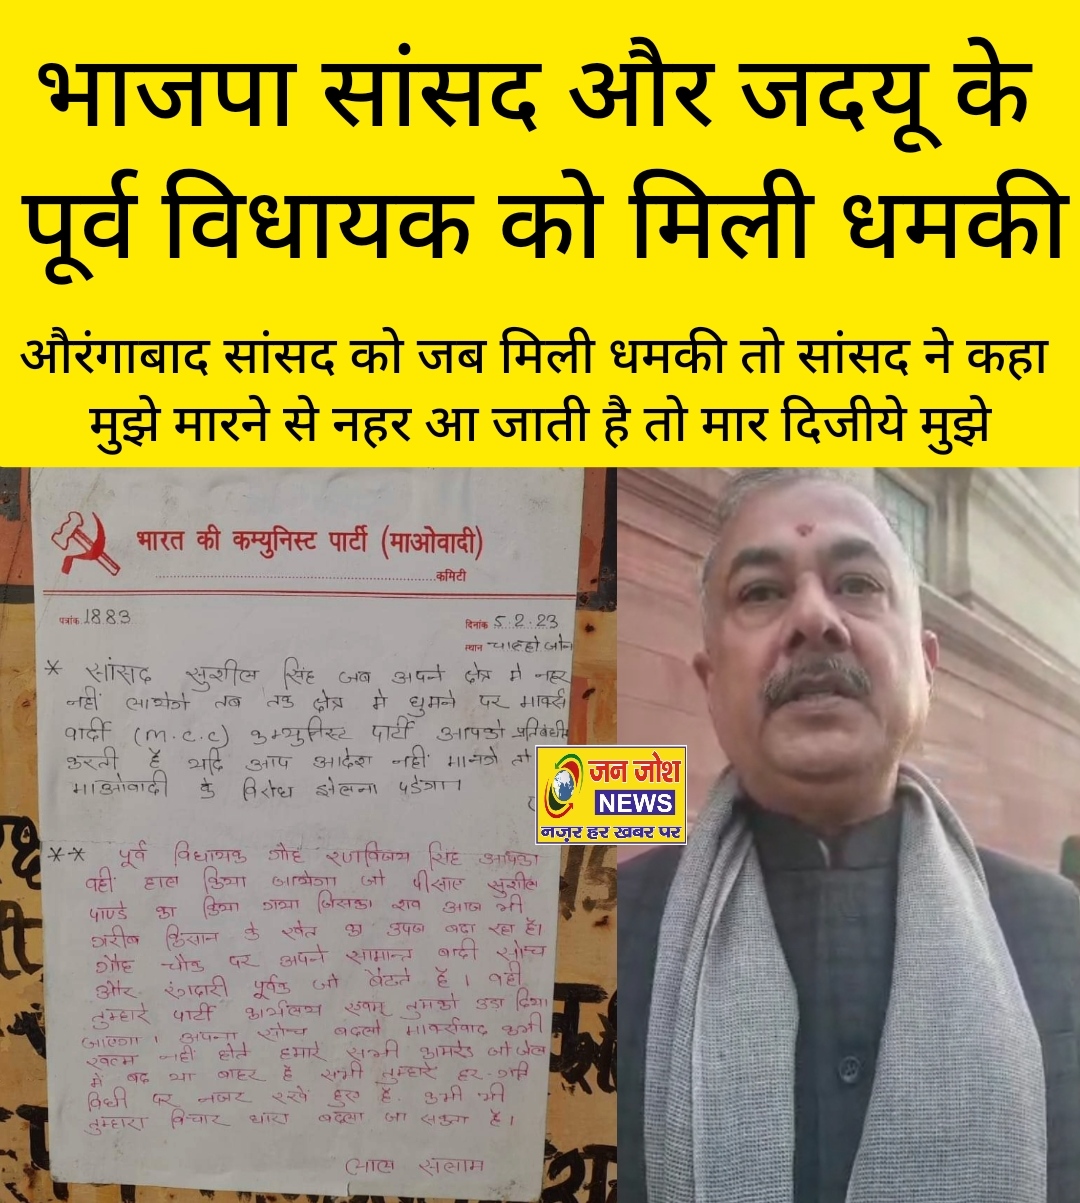 भाजपा सांसद और जदयू के
पूर्व विधायक को मिली धमकी
औरंगाबाद सांसद को जब मिली धमकी तो सांसद ने कहा
मुझे मारने से नहर आ जाती है तो मार दिजीये मुझे
भारत की कम्युनिस्ट पार्टी (माओवादी)
कमिटी
पत्रांक 1883
दिनांक 5.2.23
स्थान चाल्हो जोन
* सांसद सुशील सिंह जब अपने क्षेत्र मे नहर
नहीं लायेगे तब तक क्षेत्र मे घुमने पर मार्क्स
वादी (M.C.C) कम्युनिस्ट पार्टी आपको प्रतिबंधीत
करती है यदि आप आदेश नहीं मानगे तो
माओवादी के विरोध झेलना पडेगा।
** पूर्व विधायक गोह रणविजय सिंह आपका
वहीं हाल किया जायेगा जो पीसाए सुशील
पाण्डे का किया गया जिसका शव आज भी
गरीब किसान के खेत का उपज बढा रहा है।
गोह चौक पर अपने सामान्त बादी सोच
और रंगदारी पूर्वक जो बैठते है। वही
तुम्हारे पार्टी कार्यालय एवम् तुमको उडा दिया
जाएगा। अपना सोच बदलो मार्क्सवाद कभी
खत्म नहीं होते हमारे सभी कामरेड जो जेल
में बंद या बाहर है सभी तुम्हारे हर गति
विधी पर नजर रखे हुए है. कभी भी
तुम्हारा विचार धारा बदला जा सकता है।
लाल सलाम
जन जोश
NEWS
नज़र हर खबर पर